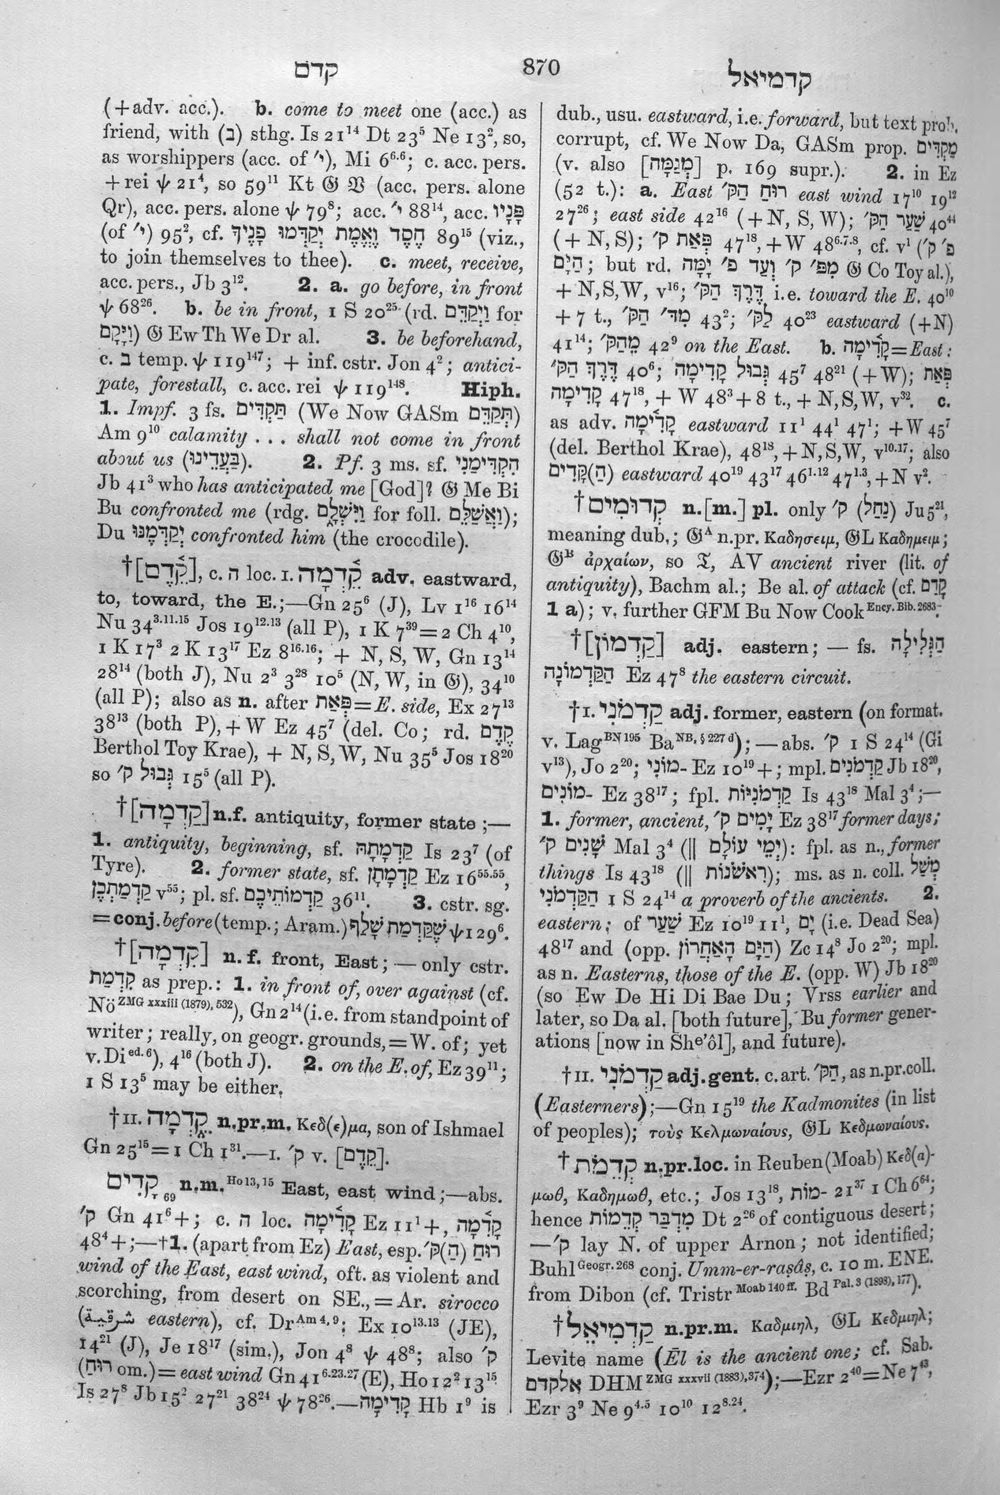 קדם
870
קדמיאל
(+adv. acc.). b. come to meet one (acc.) as
friend, with (בְּ) sthg. Is 21¹⁴ Dt 23⁵ Ne 13², so,
as worshippers (acc. of י׳), Mi 6⁶·⁶; c. acc. pers.
+rei ψ 21⁴, so 59¹¹ Kt 𝔊 𝔙 (acc. pers. alone
Qr), acc. pers. alone ψ 79⁸; acc. י׳ 88¹⁴, acc. פָּנָיו
(of י׳) 95², cf. חֶסֶד וֶאֱמֶת יְקַדְּמוּ פָנֶיךָ 89¹⁵ (viz.,
to join themselves to thee). c. meet, receive,
acc. pers., Jb 3¹². 2. a. go before, in front
ψ 68²⁶. b. be in front, 1 S 20²⁵ (rd. וַיְקַדֵּם for
וַיָּקָם) 𝔊 Ew Th We Dr al. 3. be beforehand,
c. בְּ temp. ψ 119¹⁴⁷; + inf. cstr. Jon 4²; antici-
pate, forestall, c. acc. rei ψ 119¹⁴⁸. Hiph.
1. Impf. 3 fs. תַּקְדִּים (We Now GASm תְּקַדֵּם)
Am 9¹⁰ calamity ... shall not come in front
about us (בַּעֲדֵינוּ). 2. Pf. 3 ms. sf. הִקְדִּימַנִי
Jb 41³ who has anticipated me [God]? 𝔊 Me Bi
Bu confronted me (rdg. וַיִּשְׁלָם for foll. וַאֲשַׁלֵּם);
Du יְקַדְּמֶנּוּ confronted him (the crocodile).
†[קֵ֫דֶם], c. ה loc. 1. קֵ֫דְמָה adv. eastward,
to, toward, the E.;—Gn 25⁶ (J), Lv 1¹⁶ 16¹⁴
Nu 34³·¹¹·¹⁵ Jos 19¹²·¹³ (all P), 1 K 7³⁹=2 Ch 4¹⁰,
1 K 17³ 2 K 13¹⁷ Ez 8¹⁶·¹⁶; + N, S, W, Gn 13¹⁴
28¹⁴ (both J), Nu 2³ 3²⁸ 10⁵ (N, W, in 𝔊), 34¹⁰
(all P); also as n. after פְּאַת=E. side, Ex 27¹³
38¹³ (both P), +W Ez 45⁷ (del. Co; rd. קֶדֶם
Berthol Toy Krae), + N, S, W, Nu 35⁵ Jos 18²⁰
so גְּבוּל ק׳ 15⁵ (all P).
†[קַדְמָה] n.f. antiquity, former state;—
1. antiquity, beginning, sf. קַדְמָתָהּ Is 23⁷ (of
Tyre). 2. former state, sf. קַדְמָתָן Ez 16⁵⁵·⁵⁵,
קַדְמַתְכֶן v⁵⁵; pl. sf. קַדְמוֹתֵיכֶם 36¹¹. 3. cstr. sg.
=conj. before (temp.; Aram.) שֶׁקַּדְמַת שָׁלַף ψ 129⁶.
†[קִדְמָה] n. f. front, East;—only cstr.
קִדְמַת as prep.: 1. in front of, over against (cf.
Nö ZMG xxxiii (1879), 532), Gn 2¹⁴ (i.e. from standpoint of
writer; really, on geogr. grounds, =W. of; yet
v. Di ed. 6), 4¹⁶ (both J). 2. on the E. of, Ez 39¹¹;
1 S 13⁵ may be either.
†II. קֵדְמָה n.pr.m. Κεδ(ε)μα, son of Ishmael
Gn 25¹⁵=1 Ch 1³¹.—I. ק׳ v. [קֵדֶם].
קָדִים ₆₉ n.m. Ho 13, 15 East, east wind;—abs.
ק׳ Gn 41⁶+; c. ה loc. קָדִ֫ימָה Ez 11¹+, קָדִ֫מָה
48⁴+;—†1. (apart from Ez) East, esp. רוּחַ (הַ)קּ׳
wind of the East, east wind, oft. as violent and
scorching, from desert on SE.,=Ar. sirocco
(شرقية eastern), cf. Dr Am 4, 9; Ex 10¹³·¹³ (JE),
14²¹ (J), Je 18¹⁷ (sim.), Jon 4⁸ ψ 48⁸; also ק׳
(רוּחַ om.)=east wind Gn 41⁶·²³·²⁷ (E), Ho 12² 13¹⁵
Is 27⁸ Jb 15² 27²¹ 38²⁴ ψ 78²⁶.—קָדִימָה Hb 1⁹ is
dub., usu. eastward, i.e. forward, but text prob.
corrupt, cf. We Now Da, GASm prop. מִקְּדִים
(v. also [מְגַמָּה] p. 169 supr.). 2. in Ez
(52 t.): a. East רוּחַ הַקּ׳ east wind 17¹⁰ 19¹²
27²⁶; east side 42¹⁶ (+N, S, W); שַׁעַר הַקּ׳ 40⁴⁴
(+ N, S); פְּאַת ק׳ 47¹⁸, +W 48⁶·⁷·⁸, cf. v¹ (פ׳ ק׳
הַיָּם; but rd. מִפּ׳ ק׳ וְעַד פ׳ יָמָּה 𝔊 Co Toy al.),
+ N, S, W, v¹⁶; דֶּרֶךְ הַקּ׳ i.e. toward the E. 40¹⁰
+ 7 t., מִדּ׳ הַקּ׳ 43²; לַקּ׳ 40²³ eastward (+N)
41¹⁴; מֵהַקּ׳ 42⁹ on the East. b. קָדִ֫ימָה=East:
דֶּרֶךְ הַקּ׳ 40⁶; גְּבוּל קָדִימָה 45⁷ 48²¹ (+W); פְּאַת
קָדִימָה 47¹⁸, + W 48³+8 t., + N, S, W, v³². c.
as adv. קָדִ֫ימָה eastward 11¹ 44¹ 47¹; +W 45⁷
(del. Berthol Krae), 48¹⁸, +N, S, W, v¹⁰·¹⁷; also
(הַ)קָּדִים eastward 40¹⁹ 43¹⁷ 46¹·¹² 47¹·³, +N v².
†קְדוּמִים n.[m.] pl. only ק׳ (נַחַל) Ju 5²¹,
meaning dub.; 𝔊ᴬ n.pr. Καδησειμ, 𝔊L Καδημειμ;
𝔊ᴮ ἀρχαίων, so 𝔗, AV ancient river (lit. of
antiquity), Bachm al.; Be al. of attack (cf. קדם
1 a); v. further GFM Bu Now Cook Ency. Bib. 2683.
†[קַדְמוֹן] adj. eastern;—fs. הַגְּלִילָה
הַקַּדְמוֹנָה Ez 47⁸ the eastern circuit.
†I. קַדְמֹנִי adj. former, eastern (on format.
v. Lag BN 195 Ba NB, § 227 d);—abs. ק׳ 1 S 24¹⁴ (Gi
v¹³), Jo 2²⁰; ־מוֹנִי Ez 10¹⁹+; mpl. קַדְמֹנִים Jb 18²⁰,
־מוֹנִים Ez 38¹⁷; fpl. קַדְמֹנִיּוֹת Is 43¹⁸ Mal 3⁴;—
1. former, ancient, יָמִים ק׳ Ez 38¹⁷ former days;
שָׁנִים ק׳ Mal 3⁴ (‖ יְמֵי עוֹלָם): fpl. as n., former
things Is 43¹⁸ (‖ רִאשֹׁנוֹת); ms. as n. coll. מְשַׁל
הַקַּדְמֹנִי 1 S 24¹⁴ a proverb of the ancients. 2.
eastern; of שַׁעַר Ez 10¹⁹ 11¹, יָם (i.e. Dead Sea)
48¹⁷ and (opp. הַיָּם הָאַחֲרוֹן) Zc 14⁸ Jo 2²⁰; mpl.
as n. Easterns, those of the E. (opp. W) Jb 18²⁰
(so Ew De Hi Di Bae Du; Vrss earlier and
later, so Da al. [both future], Bu former gener-
ations [now in Sheʾôl], and future).
†II. קַדְמֹנִי adj.gent. c. art. הַקּ׳, as n.pr.coll.
(Easterners);—Gn 15¹⁹ the Kadmonites (in list
of peoples); τοὺς Κελμωναίους, 𝔊L Κεδμωναίους.
†קְדֵמֹת n.pr.loc. in Reuben (Moab) Κεδ(α)-
μωθ, Καδημωθ, etc.; Jos 13¹⁸, ־מוֹת 21³⁷ 1 Ch 6⁶⁴;
hence מִדְבַּר קְדֵמוֹת Dt 2²⁶ of contiguous desert;
—ק׳ lay N. of upper Arnon; not identified;
Buhl Geogr. 268 conj. Umm-er-raṣâṣ, c. 10 m. ENE.
from Dibon (cf. Tristr Moab 140 ff. Bd Pal. 3 (1898), 177).
†קַדְמִיאֵל n.pr.m. Καδμιηλ, 𝔊L Κεδμιηλ;
Levite name (Ēl is the ancient one; cf. Sab.
אלקדם DHM ZMG xxxvii (1883), 374);—Ezr 2⁴⁰=Ne 7⁴³,
Ezr 3⁹ Ne 9⁴·⁵ 10¹⁰ 12⁸·²⁴.